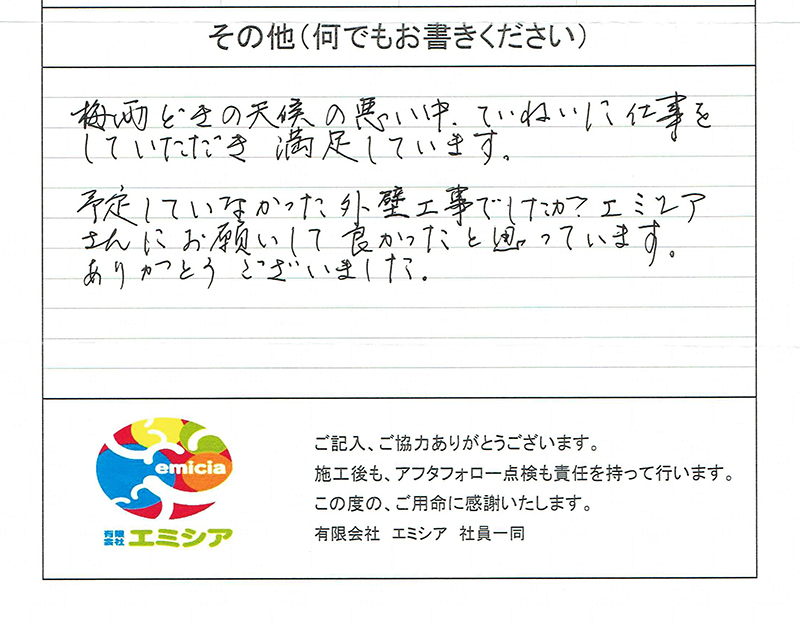 その他(何でもお書きください)
梅雨どきの天候の悪い中、ていねいに仕事を
していただき 満足しています。
予定していなかった外壁工事でしたが、エミシア
さんにお願いして良かったと思っています。
ありがとうございました。
emicia
有限会社 エミシア
ご記入、ご協力ありがとうございます。
施工後も、アフタフォロー点検も責任を持って行います。
この度の、ご用命に感謝いたします。
有限会社 エミシア 社員一同